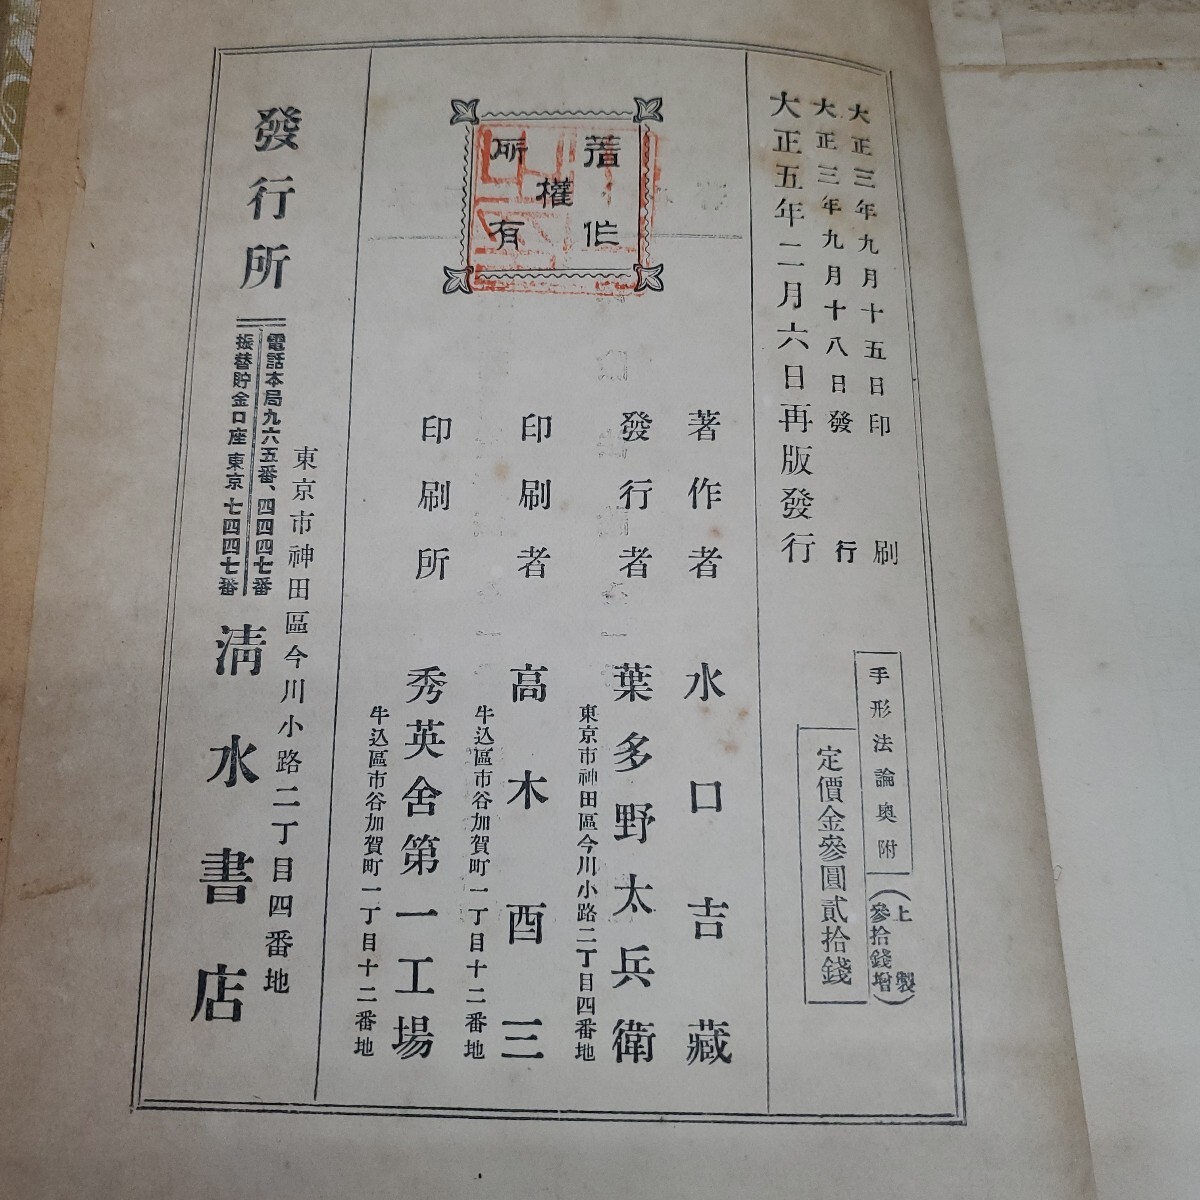 大正三年九月十五日印刷
大正三年九月十八日發行
大正五年二月六日再版發行
手形法論奥附
(上製參拾錢增)
定價金參圓貳拾錢
著作權所有
著作者 水口吉藏
發行者 葉多野太兵衛
東京市神田區今川小路二丁目四番地
印刷者 高木酉三
牛込區市谷加賀町一丁目十二番地
印刷所 秀英舍第一工場
牛込區市谷加賀町一丁目十二番地
東京市神田區今川小路二丁目四番地
發行所 淸水書店
電話本局九六五番、四四四七番
振替貯金口座東京七四四七番